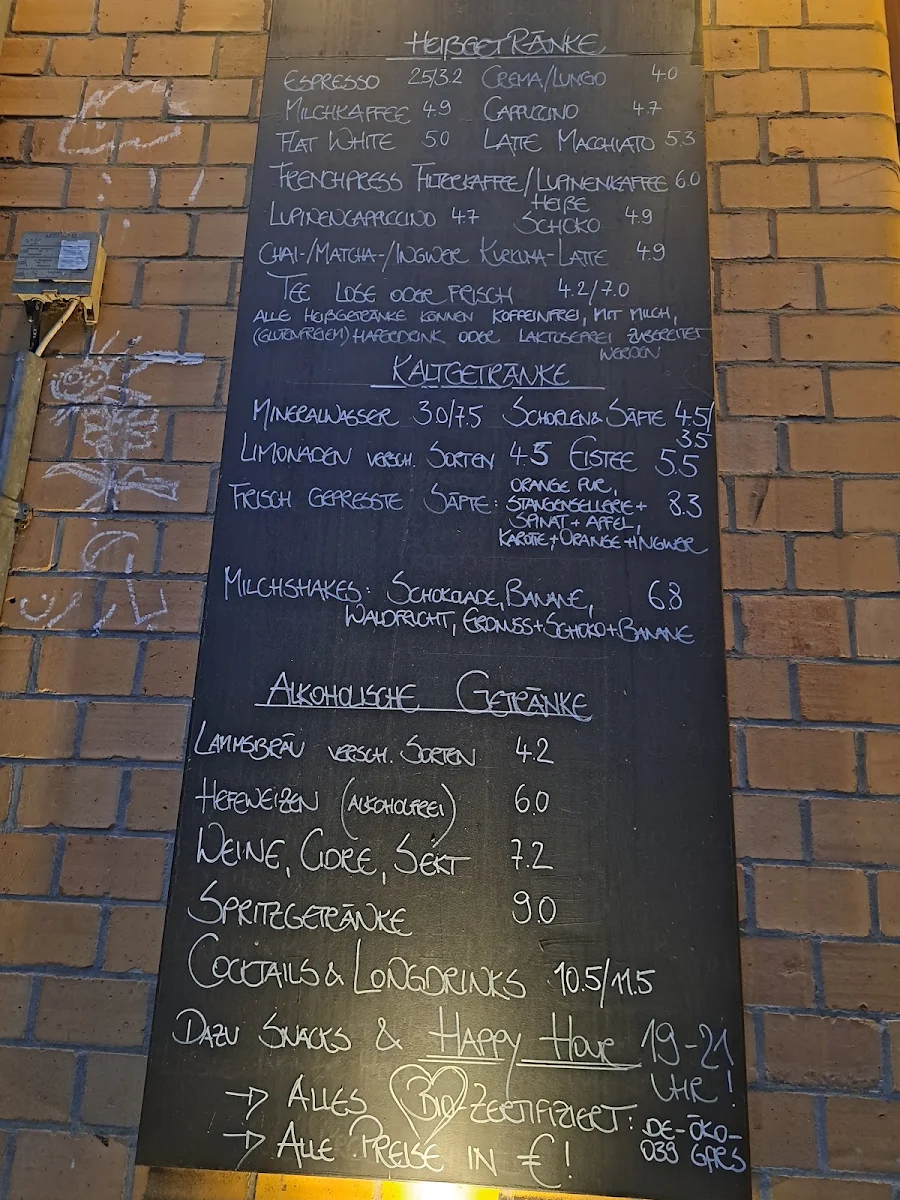 HEIẞGETRÄNKE
ESPRESSO 2.5/3.2 CREMA/LUNGO 4.0
MILCHKAFFEE 4.9 CAPPUCCINO 4.7
FLAT WHITE 5.0 LATTE MACCHIATO 5.3
FRENCHPRESS FILTERKAFFEE/LUPINENKAFFEE 6.0
LUPINENCAPPUCCINO 4.7 HEIẞE SCHOKO 4.9
CHAI-/MATCHA-/INGWER KURKUMA-LATTE 4.9
TEE LOSE ODER FRISCH 4.2/7.0
ALLE HEIẞGETRÄNKE KÖNNEN KOFFEINFREI, MIT MILCH,
(GLUTENFREIEM) HAFERDRINK ODER LAKTOSEFREI ZUBEREITET
WERDEN
KALTGETRÄNKE
MINERALWASSER 3.0/7.5 SCHORLEN & SÄFTE 4.5/
3.5
LIMONADEN VERSCH. SORTEN 4.5 EISTEE 5.5
FRISCH GEPRESSTE SÄFTE: ORANGE PUR, 8.3
STANGENSELLERIE +
SPINAT + APFEL,
KAROTTE + ORANGE + INGWER
MILCHSHAKES: SCHOKOLADE, BANANE, 6.8
WALDFRUCHT, ERDNUSS + SCHOKO + BANANE
ALKOHOLISCHE GETRÄNKE
LAMMSBRÄU VERSCH. SORTEN 4.2
HEFEWEIZEN (ALKOHOLFREI) 6.0
WEINE, CIDRE, SEKT 7.2
SPRITZGETRÄNKE 9.0
COCKTAILS & LONGDRINKS 10.5/11.5
DAZU SNACKS & HAPPY HOUR 19-21
UHR!
→ ALLES BIO-ZERTIFIZIERT: DE-ÖKO-
039 GFRS
→ ALLE PREISE IN €!